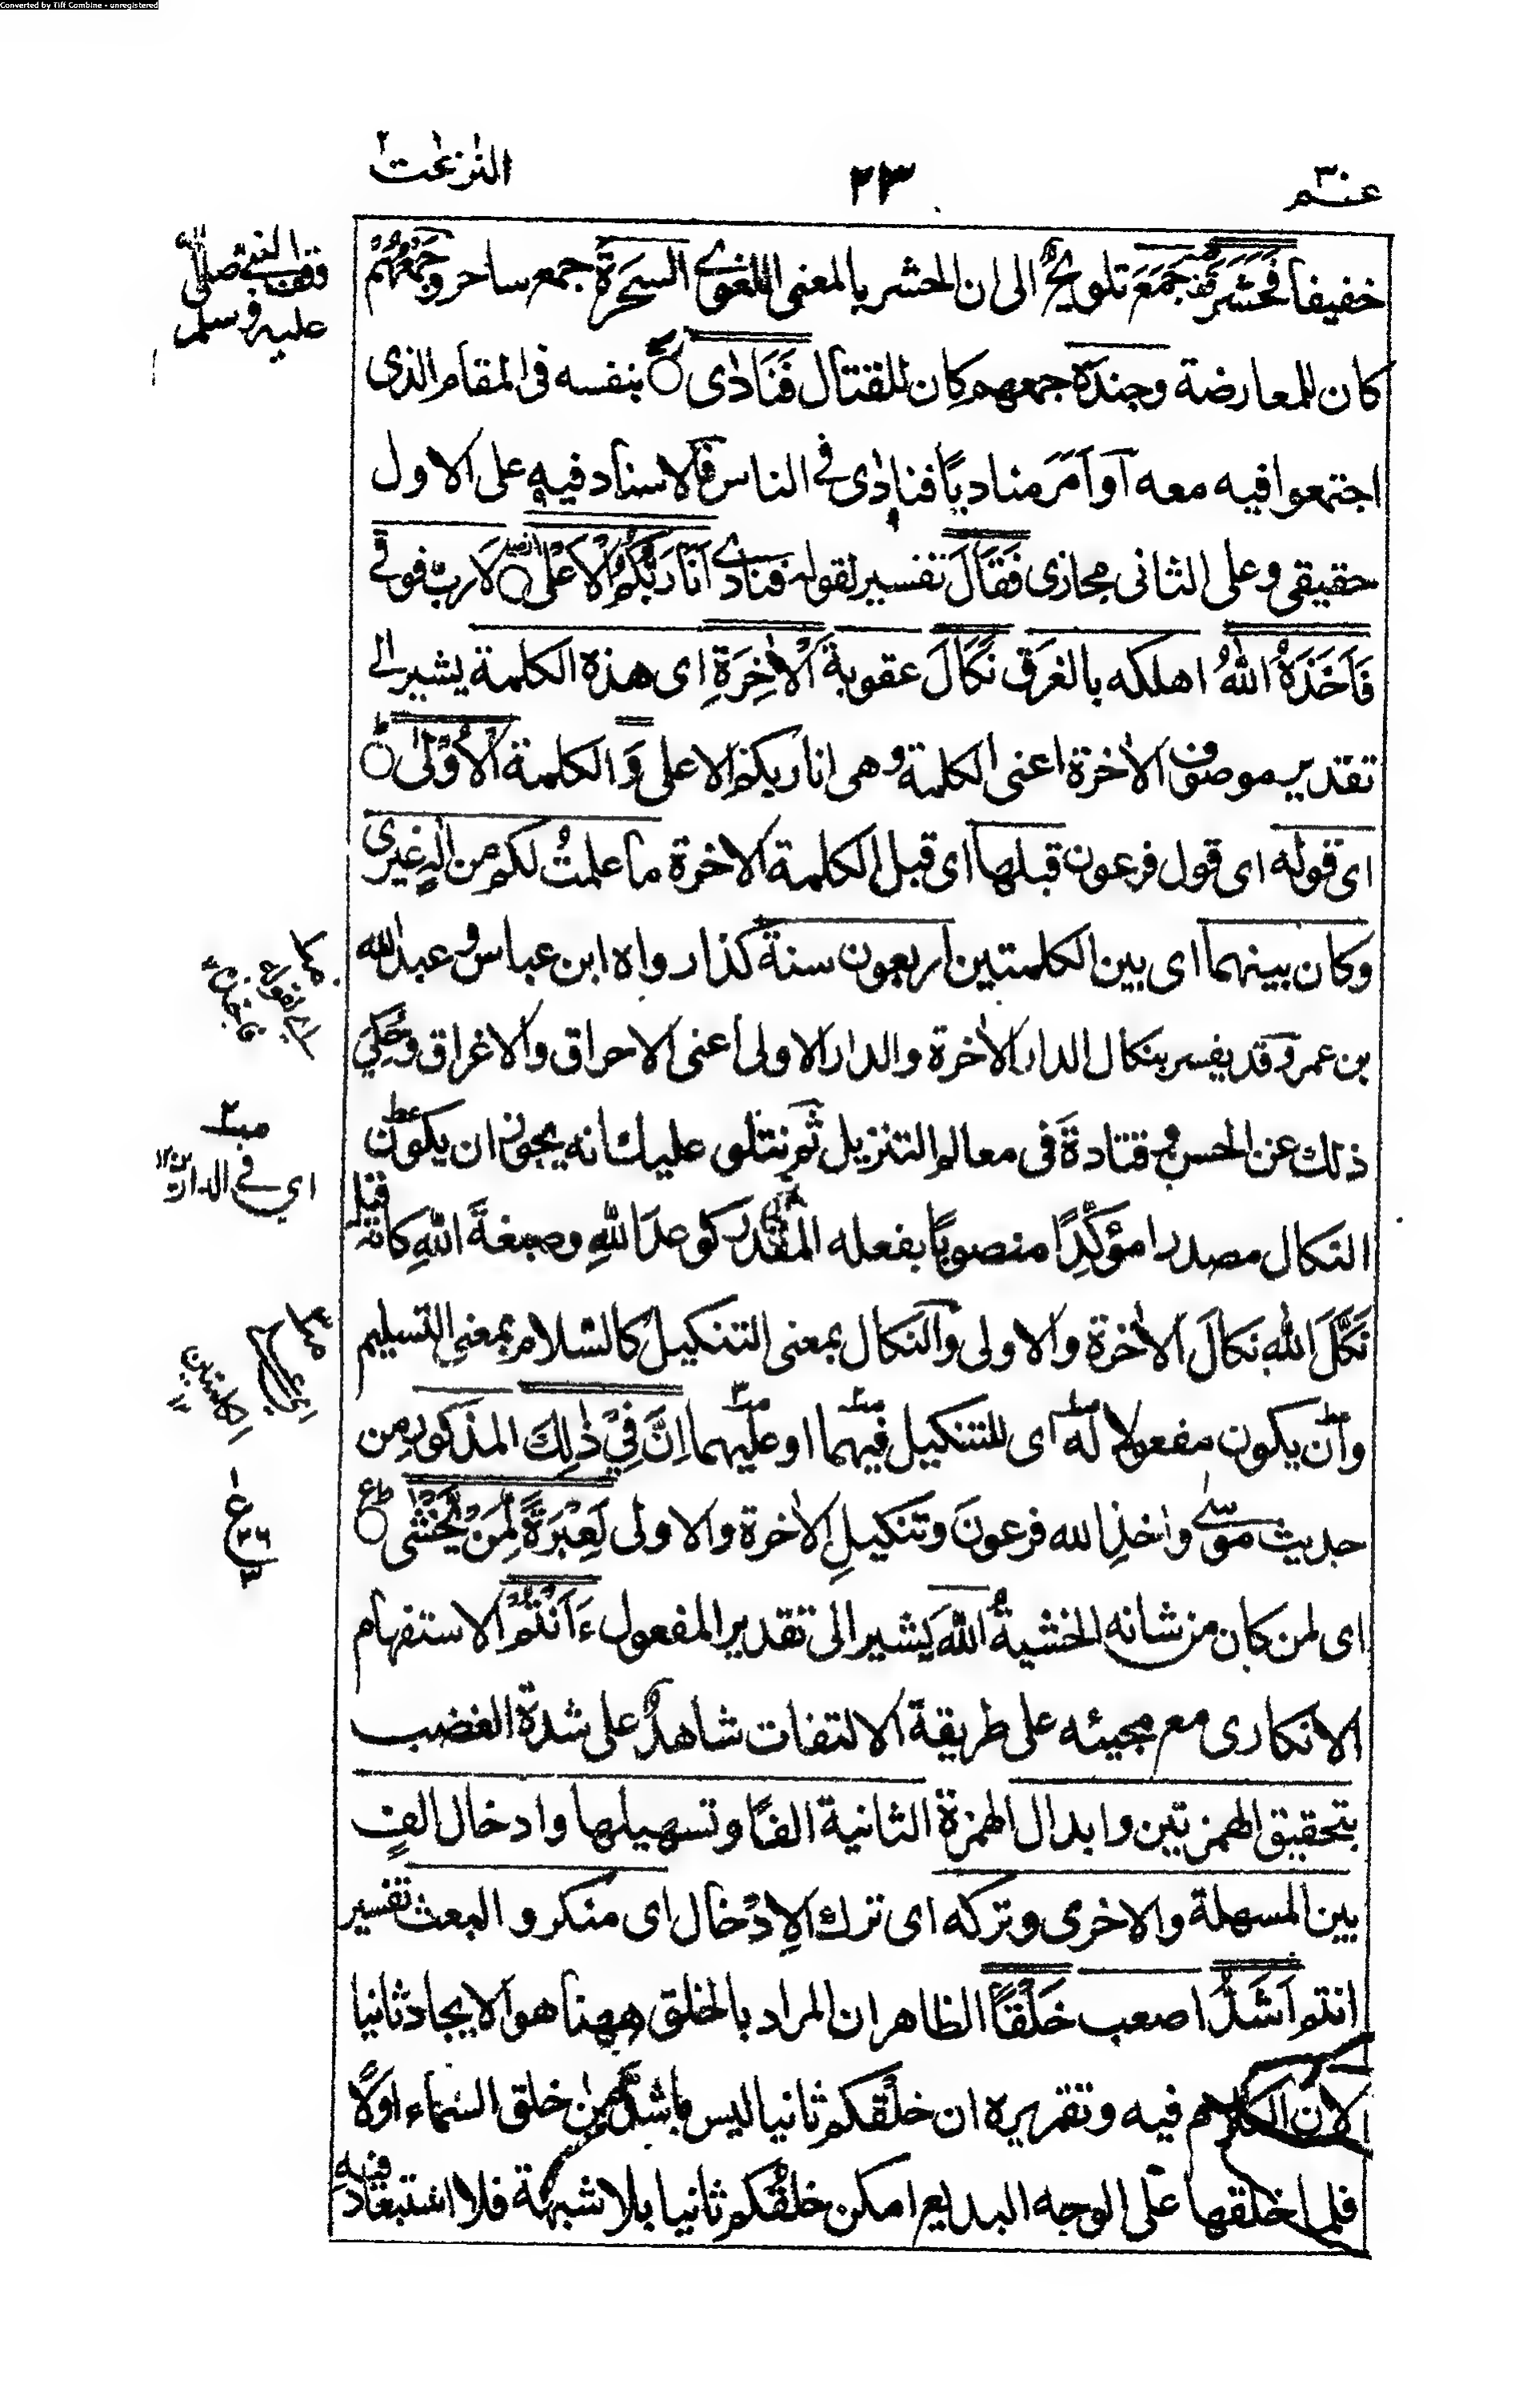 Converted by Tiff Combine - unregistered
عم ٣٠
٢٣
النّٰزعٰت
خفيفا فَحَشَرَ جَمَعَ تلويحٌ الى ان الحشر بالمعنى اللغوي السَحَرَةَ جمع ساحر وجَمْعُهُمْ
وقف النبي صلى الله عليه وسلم
كان للمعارضة وجندَه جمعهم كان للقتال فَنَادٰى بنفسه فى المقام الذى
اجتمعوا فيه معه او اَمَرَ مناديًا فنادٰى فى الناس فالاسناد فيه على الاول
حقيقى وعلى الثانى مجازى فَقَالَ تفسير لقوله فنادى اَنَا رَبُّكُمُ الْاَعْلٰى لَا ربَّ فوقى
فَاَخَذَهُ اللّٰهُ اهلكه بالغَرَق نَكَالَ عقوبةَ الْاٰخِرَةِ اى هذه الكلمة يشير الى
تقدير موصوف الاٰخرة اعنى الكلمة وهى انا ربكم الاعلى وَ الكلمة الْاُوْلٰى
اى قوله اى قول فرعون قبلها اى قبل الكلمة الاخرة ما علمتُ لكم من الٰهٍ غيرى
وكان بينهما اى بين الكلمتين اربعون سنة كذا رواه ابن عباس و عبد الله
بن عمرو وقد يفسر بنكال الدار الاٰخرة والدار الاولى اعنى الاحراق والاغراق وحُكِيَ
ذلك عن الحسن و قتادةَ فى معالم التنزيل ثم نتلو عليك انه يجوز ان يكون
اي في الدارين ١٢
قيل
النكال مصدرا مؤكِّدًا منصوبًا بفعله المقدر كوعدَ اللهِ وصبغةَ اللهِ كانه
نَكَّلَ اللهُ نكالَ الاٰخرة والاولى والنكال بمعنى التنكيل كالسلام بمعنى التسليم
الكلمتين
وان يكون مفعولا له اى للتنكيل فيهما او عليهما اِنَّ فِيْ ذٰلِكَ المذكور من
حديث موسى واخذِ الله فرعونَ وتنكيلِ الاٰخرة والاولى لَعِبْرَةً لِّمَنْ يَّخْشٰى
اى لمن كان من شانه الخشيةُ اللهَ يشير الى تقدير المفعول ءَاَنْتُمْ الاستفهام
الانكارى مع مجيئه على طريقة الالتفات شاهدٌ على شدة الغضب
بتحقيق الهمزتين وابدال الهمزة الثانية الفًا وتسهيلها وادخال الفٍ
بين المسهلة والاخرى وتركه اى ترك الادخال اى منكرو البعث تفسير
انتم اَشَدُّ اصعب خَلْقًا الظاهر ان المراد بالخلق ههنا هو الايجاد ثانيا
لان الكلام فيه وتقريره ان خلقكم ثانيا ليس باشدَّ من خلق السماء اولًا
فلما خلقها على الوجه البديع امكن خلقُكم ثانيا بلا شبهة فلا استبعاد فيه